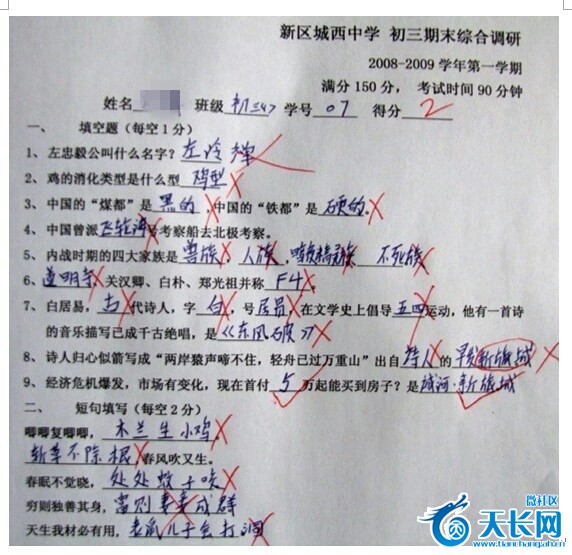 新区城西中学 初三期末综合调研
2008-2009学年第一学期
满分150分， 考试时间90分钟
姓名 班级 初三47 学号 07 得分 2
一、 填空题（每空1分）
1、左忠毅公叫什么名字？左冷禅
2、鸡的消化类型是什么型 鸡型
3、中国的“煤都”是 黑的 ,中国的“铁都”是 硬的。
4、中国曾派 飞轮海 号考察船去北极考察。
5、内战时期的四大家族是 兽族、人族、暗夜精灵族 不死族
6、道明寺、关汉卿、白朴、郑光祖并称 F4。
7、白居易，古代诗人，字 白，号 居易，在文学史上倡导 五四 运动，他有一首诗
的音乐描写已成千古绝唱，是《东风破》
8、诗人归心似箭写成“两岸猿声啼不住，轻舟已过万重山”出自 诗人 的 新旅城
9、经济危机爆发，市场有变化，现在首付 5 万起能买到房子？是 域河·新旅城
二、 短句填写（每空2分）
唧唧复唧唧， 木兰生小鸡
斩草不除根 春风吹又生。
春眠不觉晓， 处处蚊子咬
穷则独善其身，富则妻妾成群
天生我材必有用，老鼠儿子会打洞
微社区
天长网
www.tianchangahd.cn